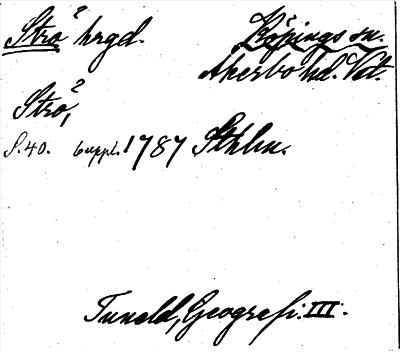 Strö hrgd. Köpings sn.
Åkerbo hd. Vst.
Strö,
S. 40. 6 uppl. 1787 Sthlm.
Tuneld, Geografi. III.